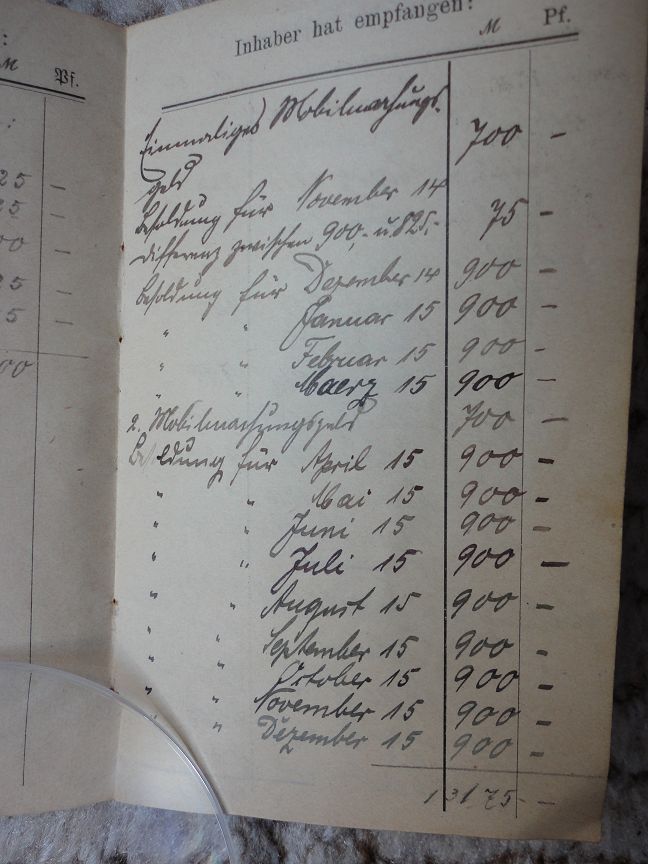 :
M Pf.
:
25 –
25 –
00 –
25 –
5 –
00
Inhaber hat empfangen:
M Pf.
Einmaliges Mobilmachungs-
geld 700 –
Besoldung für November 14
Differenz zwischen 900,- u. 825.- 75 –
Besoldung für Dezember 14 900 –
" " Januar 15 900 –
" " Februar 15 900 –
" " Maerz 15 900 –
2. Mobilmachungsgeld 700 –
Besoldung für April 15 900 –
" " Mai 15 900 –
" " Juni 15 900 –
" " Juli 15 900 –
" " August 15 900 –
" " September 15 900 –
" " October 15 900 –
" " November 15 900 –
" " Dezember 15 900 –
13175 – –